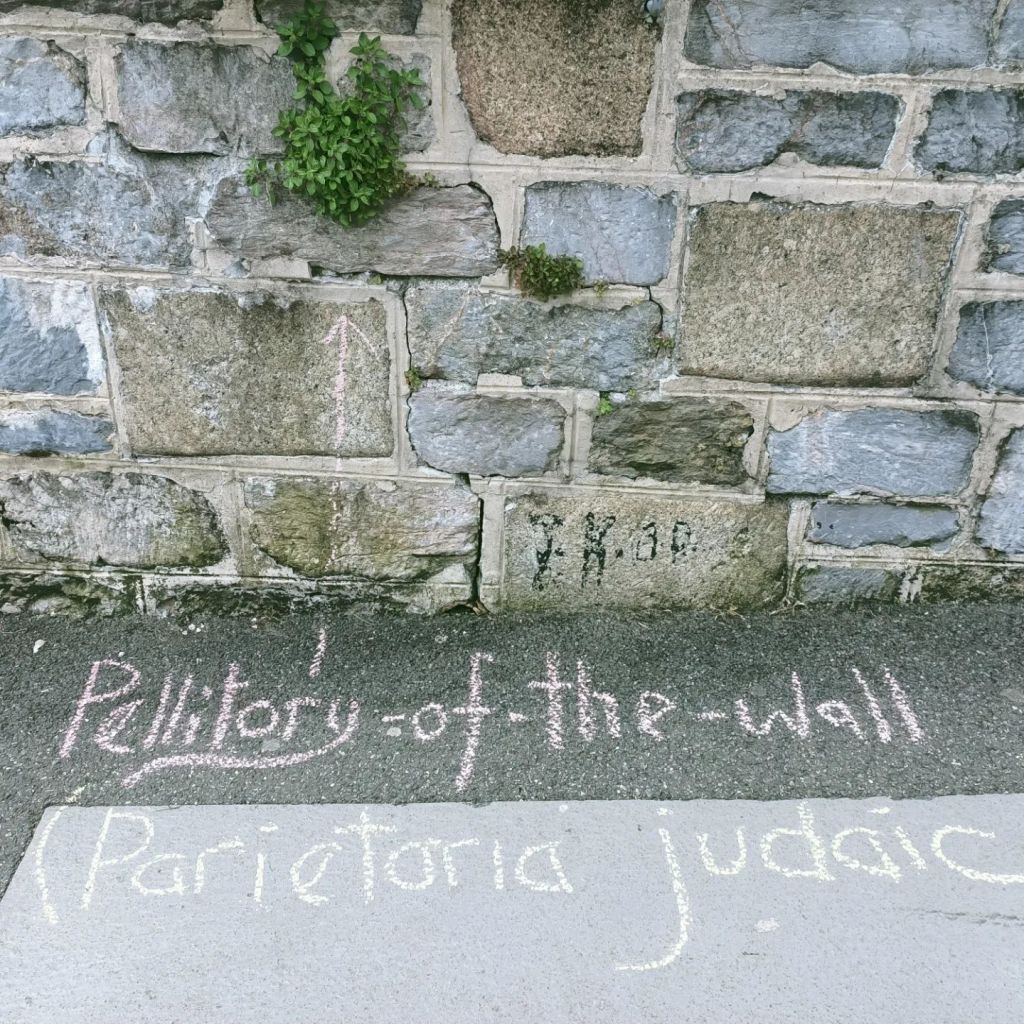 Pellitory-of-the-wall
(Parietaria judaic